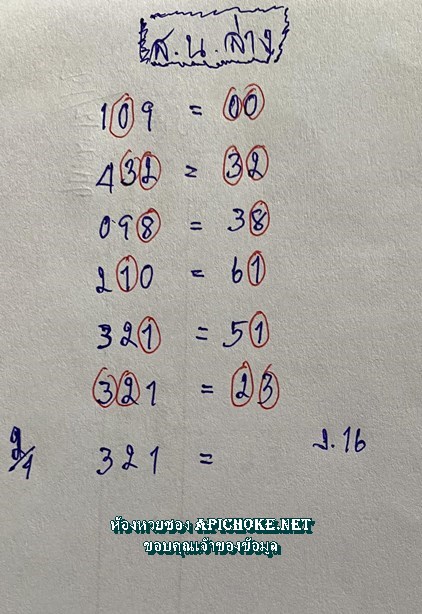 ส.น.ล่าง
109 = 00
432 = 32
098 = 38
210 = 61
321 = 51
321 = 23
321 = ง.16
ห้องหวยซอง APICHOKE.NET
ขอบคุณเจ้าของข้อมูล